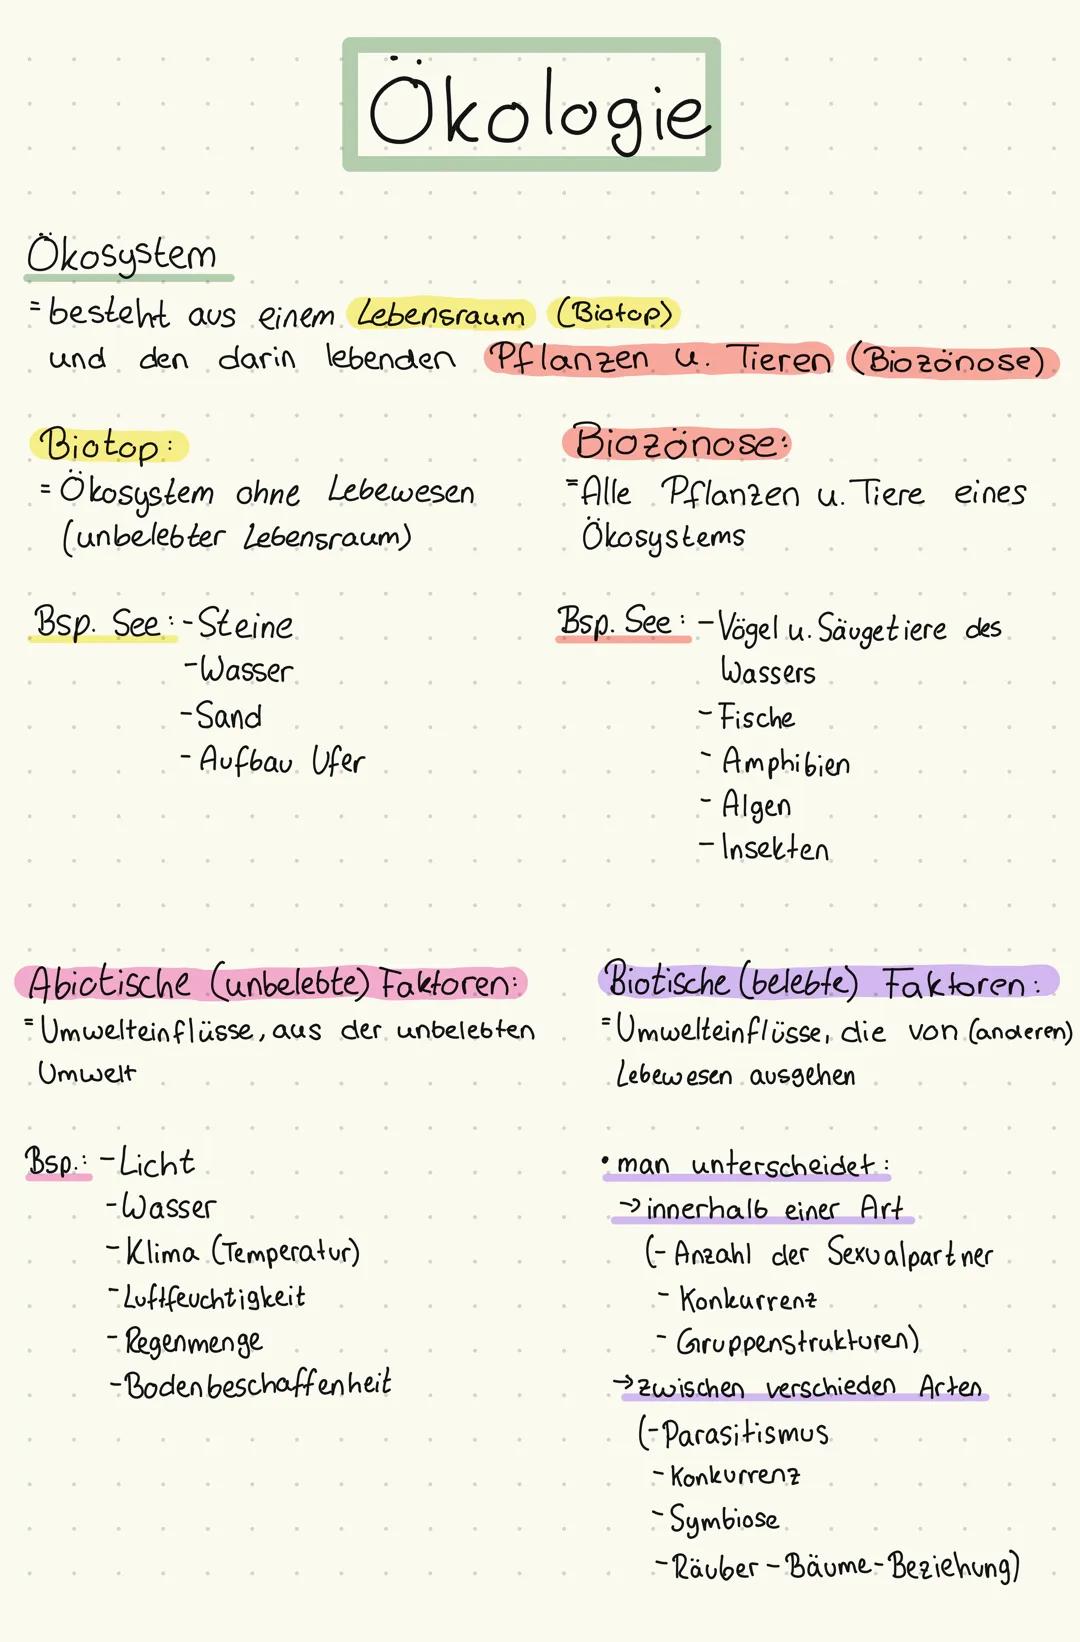 Ökologie
Ökosystem
= besteht aus einem Lebensraum (Biotop)
und den darin lebenden Pflanzen u. Tieren (Biozönose)
Biotop:
= Ökosystem ohne Lebewesen
(unbelebter Lebensraum)
Bsp. See: - Steine
- Wasser
- Sand
- Aufbau Ufer
Biozönose:
= Alle Pflanzen u. Tiere eines
Ökosystems
Bsp. See: - Vögel u. Säugetiere des
Wassers
- Fische
- Amphibien
- Algen
- Insekten
Abiotische (unbelebte) Faktoren:
= Umwelteinflüsse, aus der unbelebten
Umwelt
Bsp.: - Licht
- Wasser
- Klima (Temperatur)
- Luftfeuchtigkeit
- Regenmenge
- Bodenbeschaffenheit
Biotische (belebte) Faktoren:
= Umwelteinflüsse, die von (anderen)
Lebewesen ausgehen
• man unterscheidet:
→ innerhalb einer Art
(- Anzahl der Sexualpartner
- Konkurrenz
- Gruppenstrukturen)
→ zwischen verschieden Arten
(- Parasitismus
- Konkurrenz
- Symbiose
- Räuber - Bäume - Beziehung)